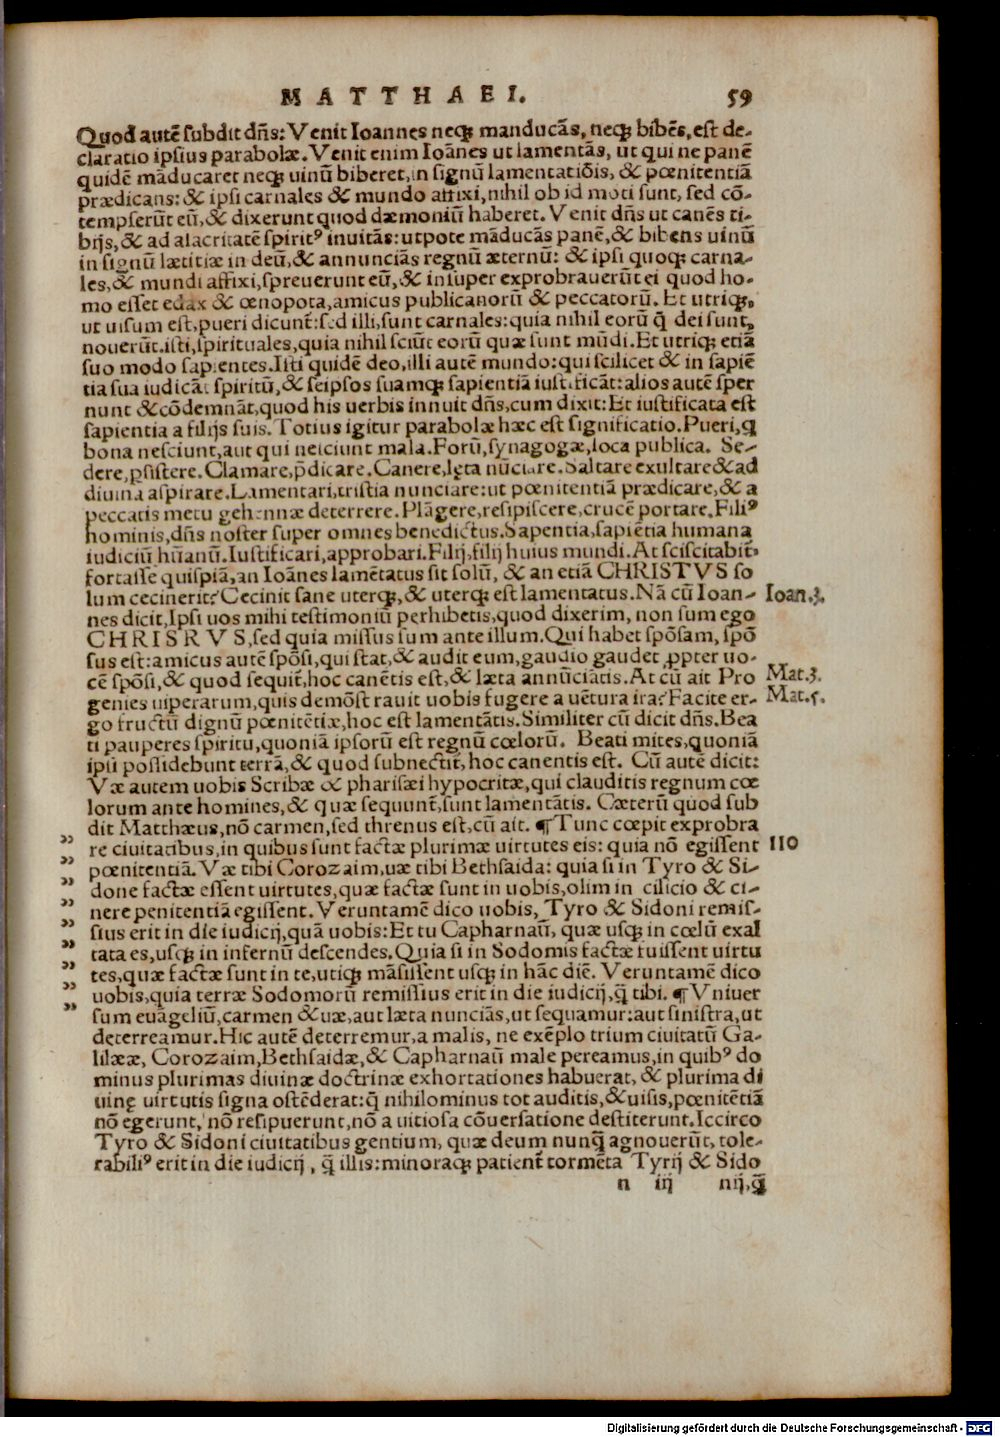 MATTHAEI. 59
Quod autē subdit dñs: Venit Ioannes neqꝫ manducās, neqꝫ bibēs, est de-
claratio ipsius parabolæ. Venit enim Ioānes ut lamentās, ut qui ne panē
quidē māducaret neqꝫ uinū biberet, in signū lamentatiōis, & pœnitentiā
prædicans: & ipsi carnales & mundo affixi, nihil ob id moti sunt, sed cō-
tempserūt eū, & dixerunt quod dæmoniū haberet. Venit dñs ut canēs ti-
bijs, & ad alacritatē spiritꝰ inuitās: utpote māducās panē, & bibens uinū
in signū lætitiæ in deū, & annunciās regnū æternū: & ipsi quoqꝫ carna-
les, & mundi affixi, spreuerunt eū, & insuper exprobrauerūt ei quod ho-
mo esset edax & œnopota, amicus publicanorū & peccatorū. Et utriqꝫ,
ut uisum est, pueri dicunt̃: sed illi, sunt carnales: quia nihil eorū q̄ dei sunt,
nouerūt. isti, spirituales, quia nihil sciūt eorū quæ sunt mūdi. Et utriqꝫ etiā
suo modo sapientes. Isti quidē deo, illi autē mundo: qui scilicet & in sapiē
tia sua iudicāt spiritū, & seipsos suamqꝫ sapientiā iustificāt: alios autē sper
nunt & cōdemnāt, quod his uerbis innuit dñs, cum dixit: Et iustificata est
sapientia a filijs suis. Totius igitur parabolæ hæc est significatio. Pueri, q
bona nesciunt, aut qui nesciunt mala. Forū, synagogæ, loca publica. Se-
dere, ꝑsistere. Clamare, p̄dicare. Canere, lęta nūciare. Saltare exultare & ad
diuina aspirare. Lamentari, tristia nunciare: ut pœnitentiā prædicare, & a
peccatis metu gehennæ deterrere. Plāgere, resipiscere, crucē portare. Filiꝰ
hominis, dñs noster super omnes benedictus. Sapentia, sapiētia humana
iudiciū hūanū. Iustificari, approbari. Filij, filij huius mundi. At sciscitabit̃
fortasse quispiā, an Ioānes lamētatus sit solū, & an etiā CHRISTVS so
lum cecinerit? Cecinit sane uterqꝫ, & uterqꝫ est lamentatus. Nā cū Ioan- Ioan.3.
nes dicit, Ipsi uos mihi testimoniū perhibetis, quod dixerim, non sum ego
CHRISRVS, sed quia missus sum ante illum. Qui habet spōsam, spō
sus est: amicus autē spōsi, qui stat, & audit eum, gaudio gaudet ꝓpter uo-
cē spōsi, & quod sequit̃, hoc canētis est, & læta annūciatis. At cū ait Pro Mat.3.
genies uiperarum, quis demōstrauit uobis fugere a uētura ira? Facite er- Mat.5.
go fructū dignū pœnitētiæ, hoc est lamentātis. Similiter cū dicit dñs. Bea
ti pauperes spiritu, quoniā ipsorū est regnū cœlorū. Beati mites, quoniā
ipsi possidebunt terrā, & quod subnectit, hoc canentis est. Cū autē dicit:
Væ autem uobis Scribæ & pharisæi hypocritæ, qui clauditis regnum cœ
lorum ante homines, & quæ sequunt̃, sunt lamentātis. Cæterū quod sub
dit Matthæus, nō carmen, sed threnus est, cū ait. ¶ Tunc cœpit exprobra
re ciuitatibus, in quibus sunt factæ plurimæ uirtutes eis: quia nō egissent 110
pœnitentiā. Væ tibi Corozaim, uæ tibi Bethsaida: quia si in Tyro & Si-
done factæ essent uirtutes, quæ factæ sunt in uobis, olim in cilicio & ci-
nere penitentiā egissent. Veruntamē dico uobis, Tyro & Sidoni remis-
sius erit in die iudicij, quā uobis: Et tu Capharnaū, quæ usqꝫ in cœlū exal
tata es, usqꝫ in infernū descendes. Quia si in Sodomis factæ fuissent uirtu
tes, quæ factæ sunt in te, utiqꝫ māsissent usqꝫ in hāc diē. Veruntamē dico
uobis, quia terræ Sodomorū remissius erit in die iudicij, q̄ tibi. ¶ Vniuer
sum euāgeliū, carmen & uæ, aut læta nunciās, ut sequamur: aut sinistra, ut
deterreamur. Hic autē deterremur, a malis, ne exēplo trium ciuitatū Ga-
lilææ, Corozaim, Bethsaidæ, & Capharnaū male pereamus, in quibꝰ do
minus plurimas diuinæ doctrinæ exhortationes habuerat, & plurima di
uinę uirtutis signa ostēderat: q̄ nihilominus tot auditis, & uisis, pœnitētiā
nō egerunt, nō resipuerunt, nō a uitiosa cōuersatione destiterunt. Iccirco
Tyro & Sidoni ciuitatibus gentium, quæ deum nunq̄ agnouerūt, tole-
rabiliꝰ erit in die iudicij, q̄ illis: minoraqꝫ patient̃ tormēta Tyrij & Sido
n iij nij, q̄
Digitalisierung gefördert durch die Deutsche Forschungsgemeinschaft - DFG